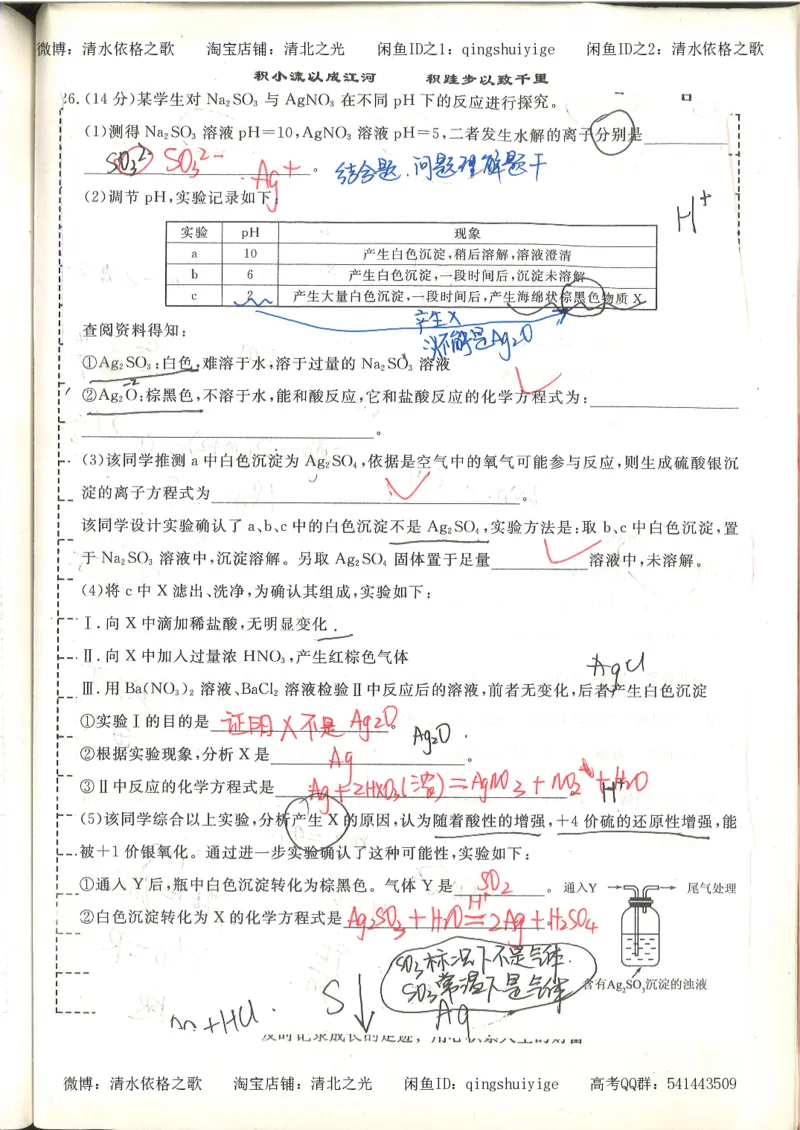 微博：清水依格之歌 淘宝店铺：清北之光 闲鱼ID之1：qingshuiyige 闲鱼ID之2：清水依格之歌
积小流以成江河 积跬步以致千里
26.(14分)某学生对 Na₂SO₃ 与 AgNO₃ 在不同 pH 下的反应进行探究。
(1)测得 Na₂SO₃ 溶液 pH=10,AgNO₃ 溶液 pH=5,二者发生水解的离子分别是
SO₃²⁻ SO₃²⁻ Ag⁺ 。 结合题、问题理解题干
(2)调节 pH,实验记录如下:
H⁺
实验 pH 现象
a 10 产生白色沉淀,稍后溶解,溶液澄清
b 6 产生白色沉淀,一段时间后,沉淀未溶解
c 2 产生大量白色沉淀,一段时间后,产生海绵状棕黑色物质 X
产生X
查阅资料得知:
是Ag₂O
①Ag₂SO₃:白色,难溶于水,溶于过量的 Na₂SO₃ 溶液
②Ag₂O:棕黑色,不溶于水,能和酸反应,它和盐酸反应的化学方程式为:
。
(3)该同学推测 a 中白色沉淀为 Ag₂SO₄,依据是空气中的氧气可能参与反应,则生成硫酸银沉
淀的离子方程式为 。
该同学设计实验确认了 a、b、c 中的白色沉淀不是 Ag₂SO₄,实验方法是:取 b、c 中白色沉淀,置
于 Na₂SO₃ 溶液中,沉淀溶解。另取 Ag₂SO₄ 固体置于足量 溶液中,未溶解。
(4)将 c 中 X 滤出、洗净,为确认其组成,实验如下:
Ⅰ.向 X 中滴加稀盐酸,无明显变化.
Ⅱ.向 X 中加入过量浓 HNO₃,产生红棕色气体
AgCl
Ⅲ.用 Ba(NO₃)₂ 溶液、BaCl₂ 溶液检验Ⅱ中反应后的溶液,前者无变化,后者产生白色沉淀
①实验Ⅰ的目的是 证明X不是Ag₂O 。
Ag₂O
②根据实验现象,分析 X 是 Ag 。
③Ⅱ中反应的化学方程式是 Ag+2HNO₃(浓)=AgNO₃+NO₂↑+H₂O
H⁺
(5)该同学综合以上实验,分析产生 X 的原因,认为随着酸性的增强,+4 价硫的还原性增强,能
被+1 价银氧化。通过进一步实验确认了这种可能性,实验如下:
①通入 Y 后,瓶中白色沉淀转化为棕黑色。气体 Y 是 SO₂ 。 通入Y 尾气处理
H⁺
②白色沉淀转化为 X 的化学方程式是 Ag₂SO₃+H₂O=2Ag+H₂SO₄
SO₃标况下不是气体.
SO₃常温下是气体
含有Ag₂SO₃沉淀的浊液
S↓
Ag
+HCl.
微博：清水依格之歌 淘宝店铺：清北之光 闲鱼ID：qingshuiyige 高考QQ群：541443509